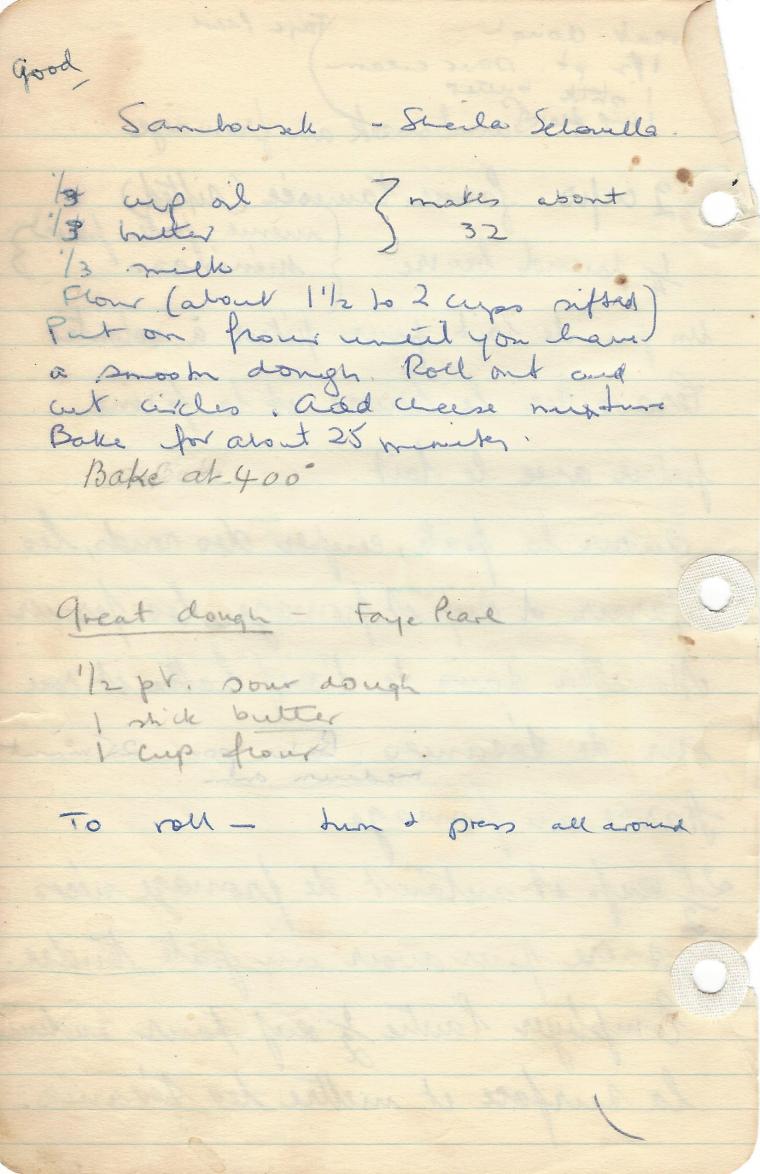 Good
Sambousek - Sheila
1/3 cup oil } makes about
1/3 butter 32
1/3 milk
Flour (about 1 1/2 to 2 cups sifted)
Put on flour until you have
a smooth dough. Roll out and
cut circles. Add cheese mixture
Bake for about 25 minutes.
Bake at 400°
Great dough - Faye Pearl
1/2 pt. sour dough
1 stick butter
1 cup flour
To roll - turn & press all around